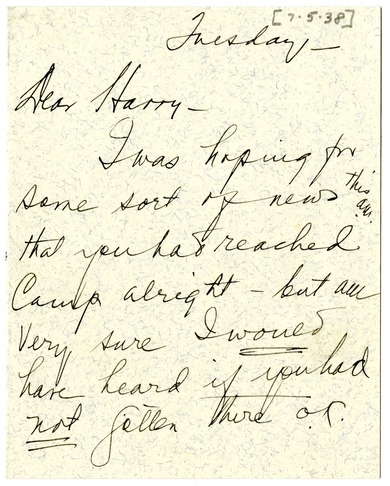 [7·5·38]
Tuesday—
Dear Harry—
I was hoping for
some sort of news this am.
that you had reached
Camp alright – but am
Very sure I would
have heard if you had
not gotten there o.k.